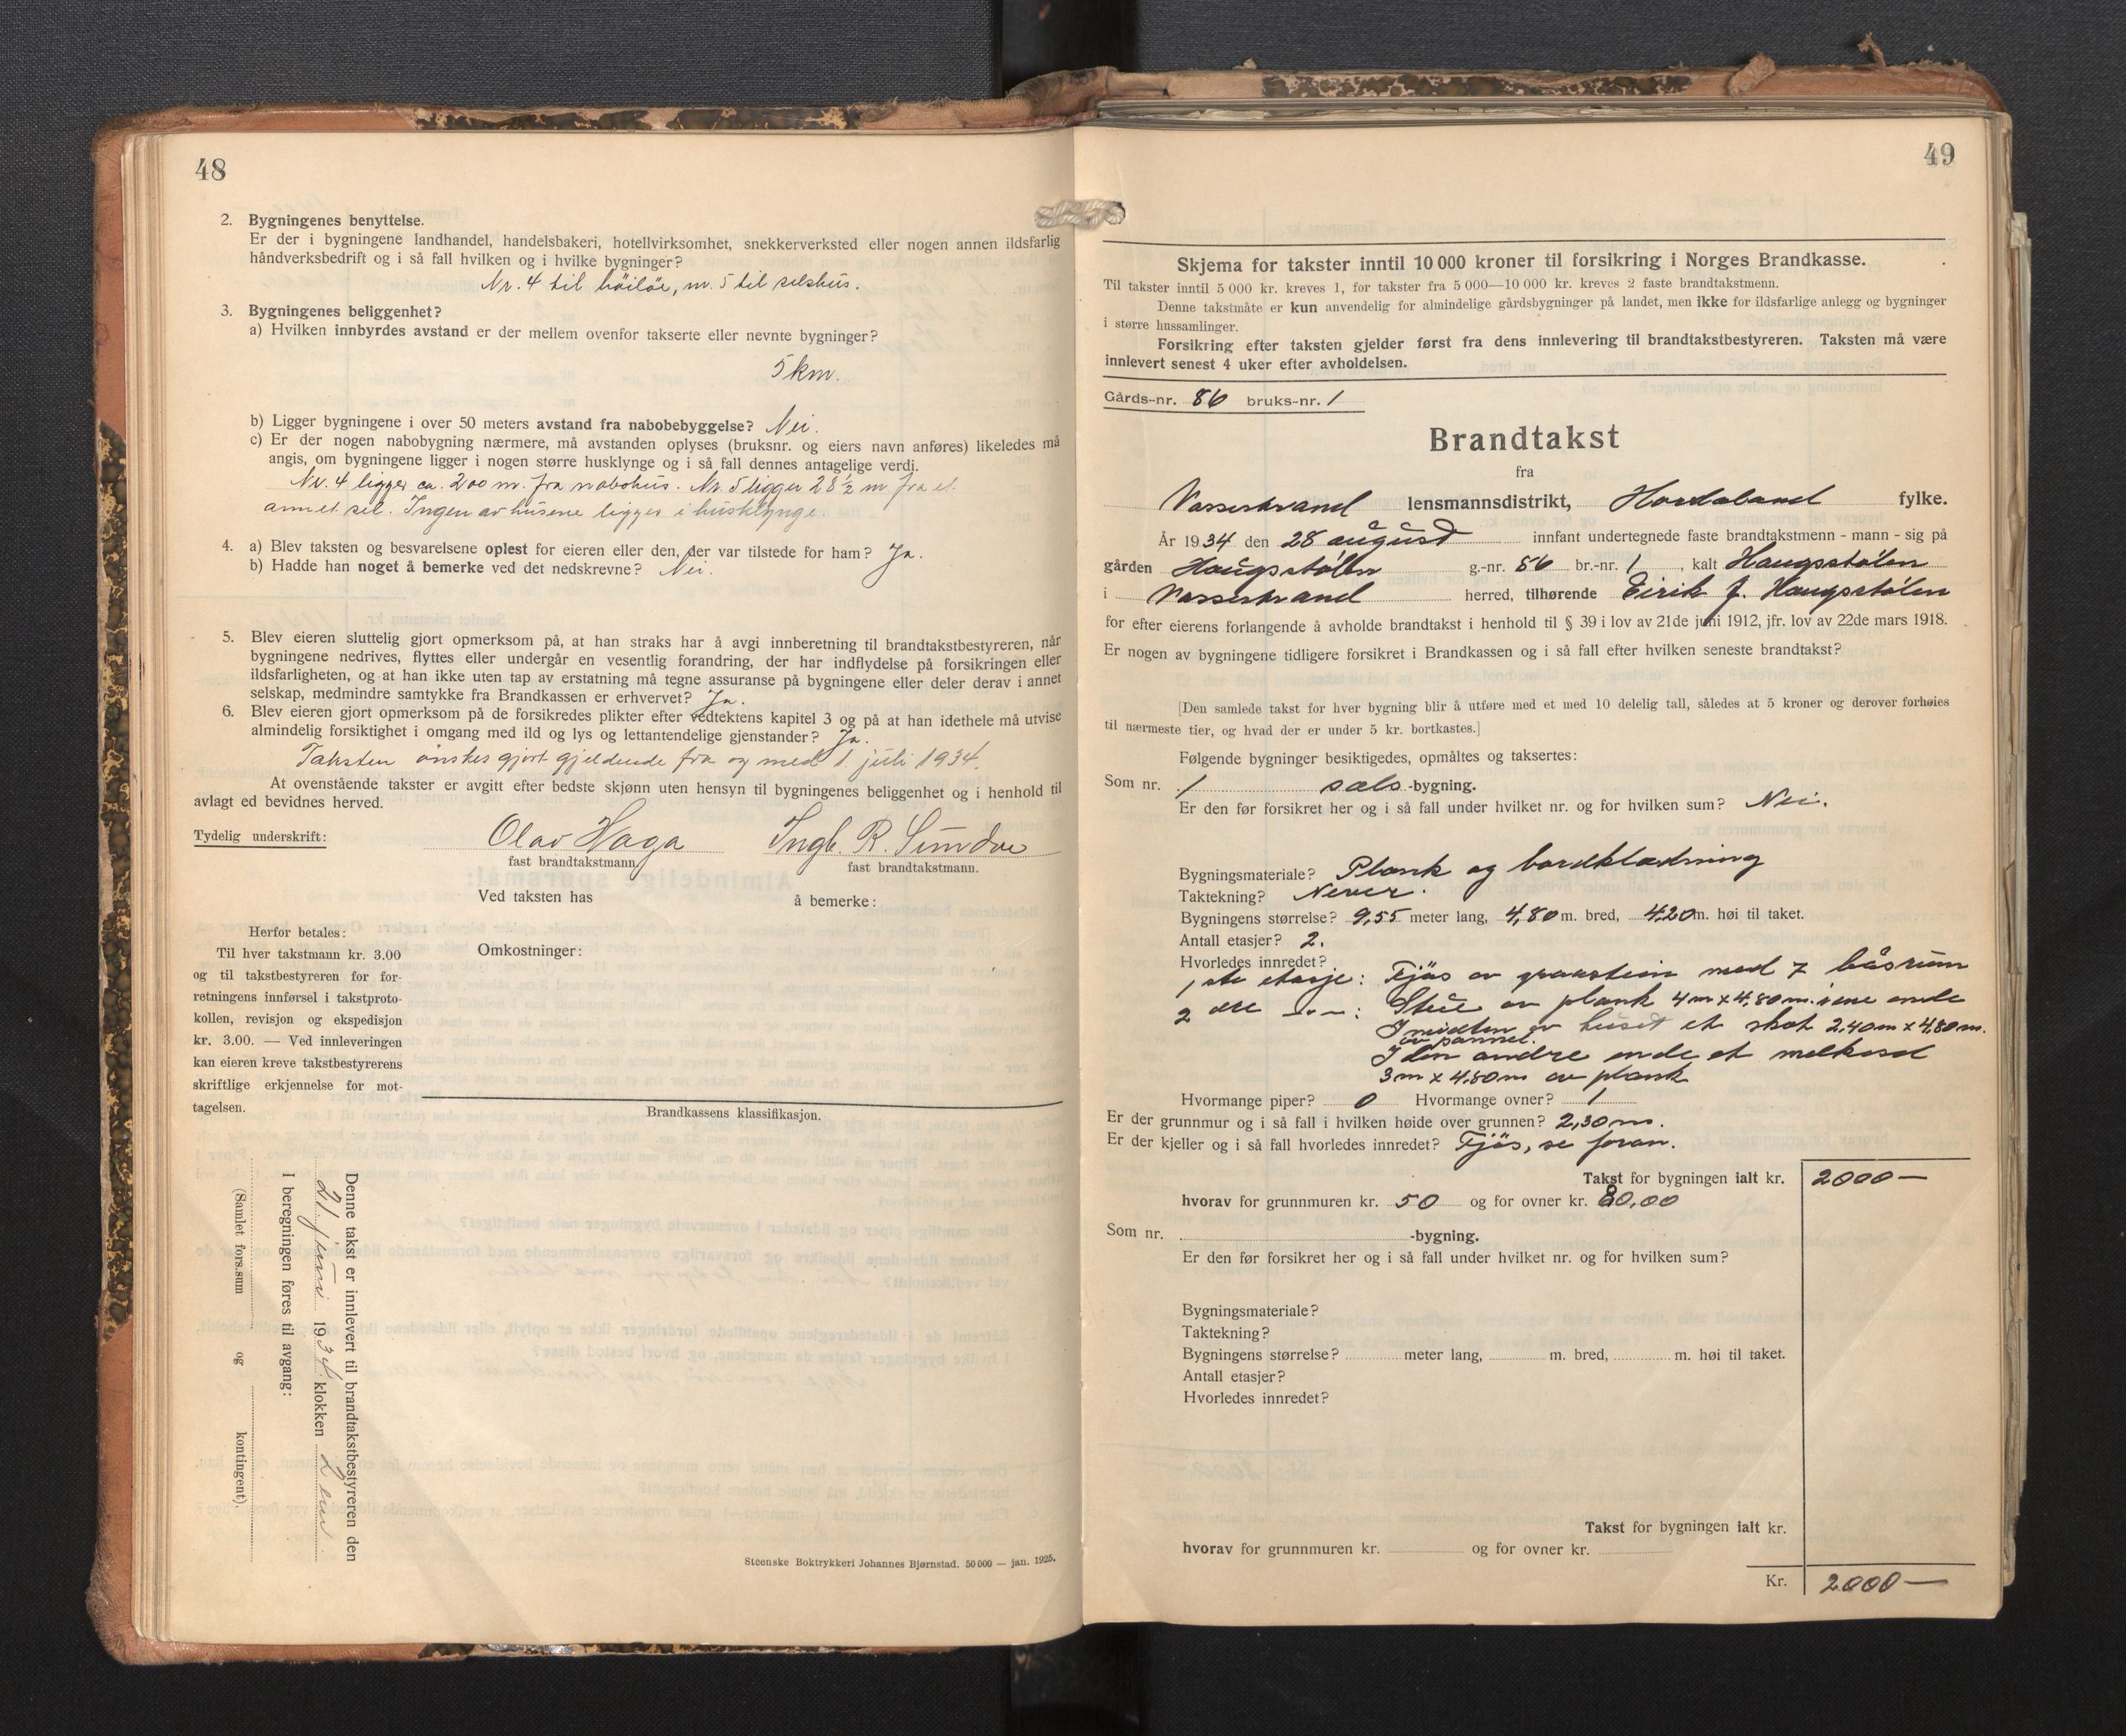 48
2. Bygningenes benyttelse.
Er der i bygningene landhandel, handelsbakeri, hotellvirksomhet, snekkerverksted eller nogen annen ildsfarlig
håndverksbedrift og i så fall hvilken og i hvilke bygninger?
Nr. 4 til höiløe, nr. 5 til selshus.
3. Bygningenes beliggenhet?
a) Hvilken innbyrdes avstand er der mellem ovenfor takserte eller nevnte bygninger?
5 km.
b) Ligger bygningene i over 50 meters avstand fra nabobebyggelse? Nei.
c) Er der nogen nabobygning nærmere, må avstanden oplyses (bruksnr. og eiers navn anføres) likeledes må
angis, om bygningene ligger i nogen større husklynge og i så fall dennes antagelige verdi.
Nr. 4 ligger ca. 200 m. fra nabohus. Nr. 5 ligger 28 1/2 m fra et
annet sel. Ingen av husene ligger i husklynge.
4. a) Blev taksten og besvarelsene oplest for eieren eller den, der var tilstede for ham? Ja.
b) Hadde han noget å bemerke ved det nedskrevne? Nei.
5. Blev eieren sluttelig gjort opmerksom på, at han straks har å avgi innberetning til brandtakstbestyreren, når
bygningene nedrives, flyttes eller undergår en vesentlig forandring, der har indflydelse på forsikringen eller
ildsfarligheten, og at han ikke uten tap av erstatning må tegne assuranse på bygningene eller deler derav i annet
selskap, medmindre samtykke fra Brandkassen er erhvervet? Ja.
6. Blev eieren gjort opmerksom på de forsikredes plikter efter vedtektens kapitel 3 og på at han idethele må utvise
almindelig forsiktighet i omgang med ild og lys og lettantendelige gjenstander? Ja.
Taksten önskes gjort gjeldende fra og med 1. juli 1934.
At ovenstående takster er avgitt efter bedste skjønn uten hensyn til bygningenes beliggenhet og i henhold til
avlagt ed bevidnes herved.
Tydelig underskrift: Olav Haga Ingb. R. Sundve
fast brandtakstmann fast brandtakstmann.
Ved taksten has å bemerke:
Herfor betales:
Til hver takstmann kr. 3.00
og til takstbestyreren for for-
retningens innførsel i takstproto-
kollen, revisjon og ekspedisjon
kr. 3.00. — Ved innleveringen
kan eieren kreve takstbestyrerens
skriftlige erkjennelse for mot-
tagelsen.
Omkostninger:
Brandkassens klassifikasjon.
Denne takst er innlevert til brandtakstbestyreren den
21 juni 1934 klokken
I beregningen føres til avgang:
(Samlet fors.sum og kontingent).
Steenske Boktrykkeri Johannes Bjørnstad. 50 000 — jan. 1925.
49
Skjema for takster inntil 10 000 kroner til forsikring i Norges Brandkasse.
Til takster inntil 5 000 kr. kreves 1, for takster fra 5 000—10 000 kr. kreves 2 faste brandtakstmenn.
Denne takstmåte er kun anvendelig for almindelige gårdsbygninger på landet, men ikke for ildsfarlige anlegg og bygninger
i større hussamlinger.
Forsikring efter taksten gjelder først fra dens innlevering til brandtakstbestyreren. Taksten må være
innlevert senest 4 uker efter avholdelsen.
Gårds-nr. 86 bruks-nr. 1
Brandtakst
fra
Vossestrand lensmannsdistrikt, Hordaland fylke.
År 1934 den 28 august innfant undertegnede faste brandtakstmenn - mann - sig på
gården Haugsstølen g.-nr. 86 br.-nr. 1, kalt Haugsstølen
i Vossestrand herred, tilhørende Eirik J. Haugsstølen
for efter eierens forlangende å avholde brandtakst i henhold til § 39 i lov av 21de juni 1912, jfr. lov av 22de mars 1918.
Er nogen av bygningene tidligere forsikret i Brandkassen og i så fall efter hvilken seneste brandtakst?
[Den samlede takst for hver bygning blir å utføre med et med 10 delelig tall, således at 5 kroner og derover forhøies
til nærmeste tier, og hvad der er under 5 kr. bortkastes.]
Følgende bygninger besiktigedes, opmåltes og taksertes:
Som nr. 1 sæls -bygning.
Er den før forsikret her og i så fall under hvilket nr. og for hvilken sum? Nei.
Bygningsmateriale? Plank og bordklædning
Taktekning? Never.
Bygningens størrelse? 9,55 meter lang, 4,80 m. bred, 4,20 m. høi til taket.
Antall etasjer? 2.
Hvorledes innredet?
1ste etasje: Fjös av graastein med 7 båsrum
2 dre —"—: Stue av plank 4 m x 4,80 m. i ene ende
I midten av huset et skot 2,40 m x 4,80 m.
av pannel.
I den andre ende et melkesel
3 m x 4,80 m av plank
Hvormange piper? 0 Hvormange ovner? 1
Er der grunnmur og i så fall i hvilken høide over grunnen? 2,30 m.
Er der kjeller og i så fall hvorledes innredet? Fjös, se foran.
Takst for bygningen ialt kr. 2000—
hvorav for grunnmuren kr. 50 og for ovner kr. 80,00
Som nr. -bygning.
Er den før forsikret her og i så fall under hvilket nr. og for hvilken sum?
Bygningsmateriale?
Taktekning?
Bygningens størrelse? meter lang, m. bred, m. høi til taket.
Antall etasjer?
Hvorledes innredet?
Takst for bygningen ialt kr.
hvorav for grunnmuren kr. og for ovner kr.
Kr. 2000—